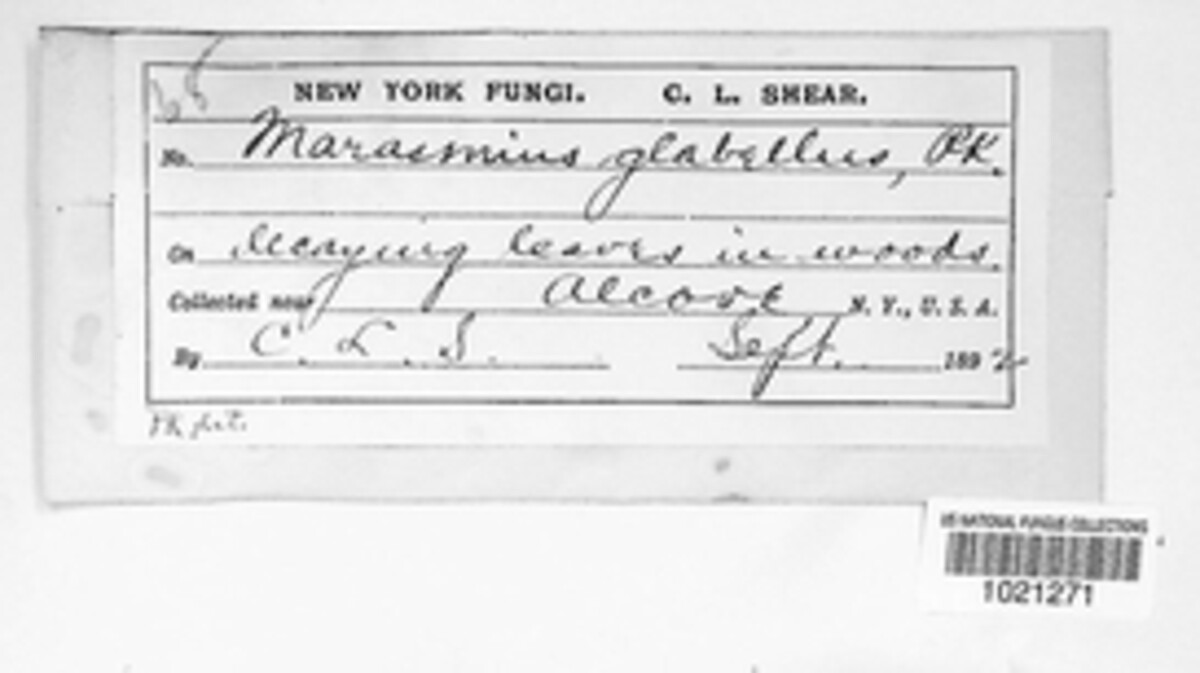 NEW YORK FUNGI. C. L. SHEAR.
No. Marasmius glabellus, PK.
On decaying leaves in woods.
Collected near Alcove N. Y., U. S. A.
By C. L. S. Sept. 1892
US NATIONAL FUNGUS COLLECTIONS
1021271